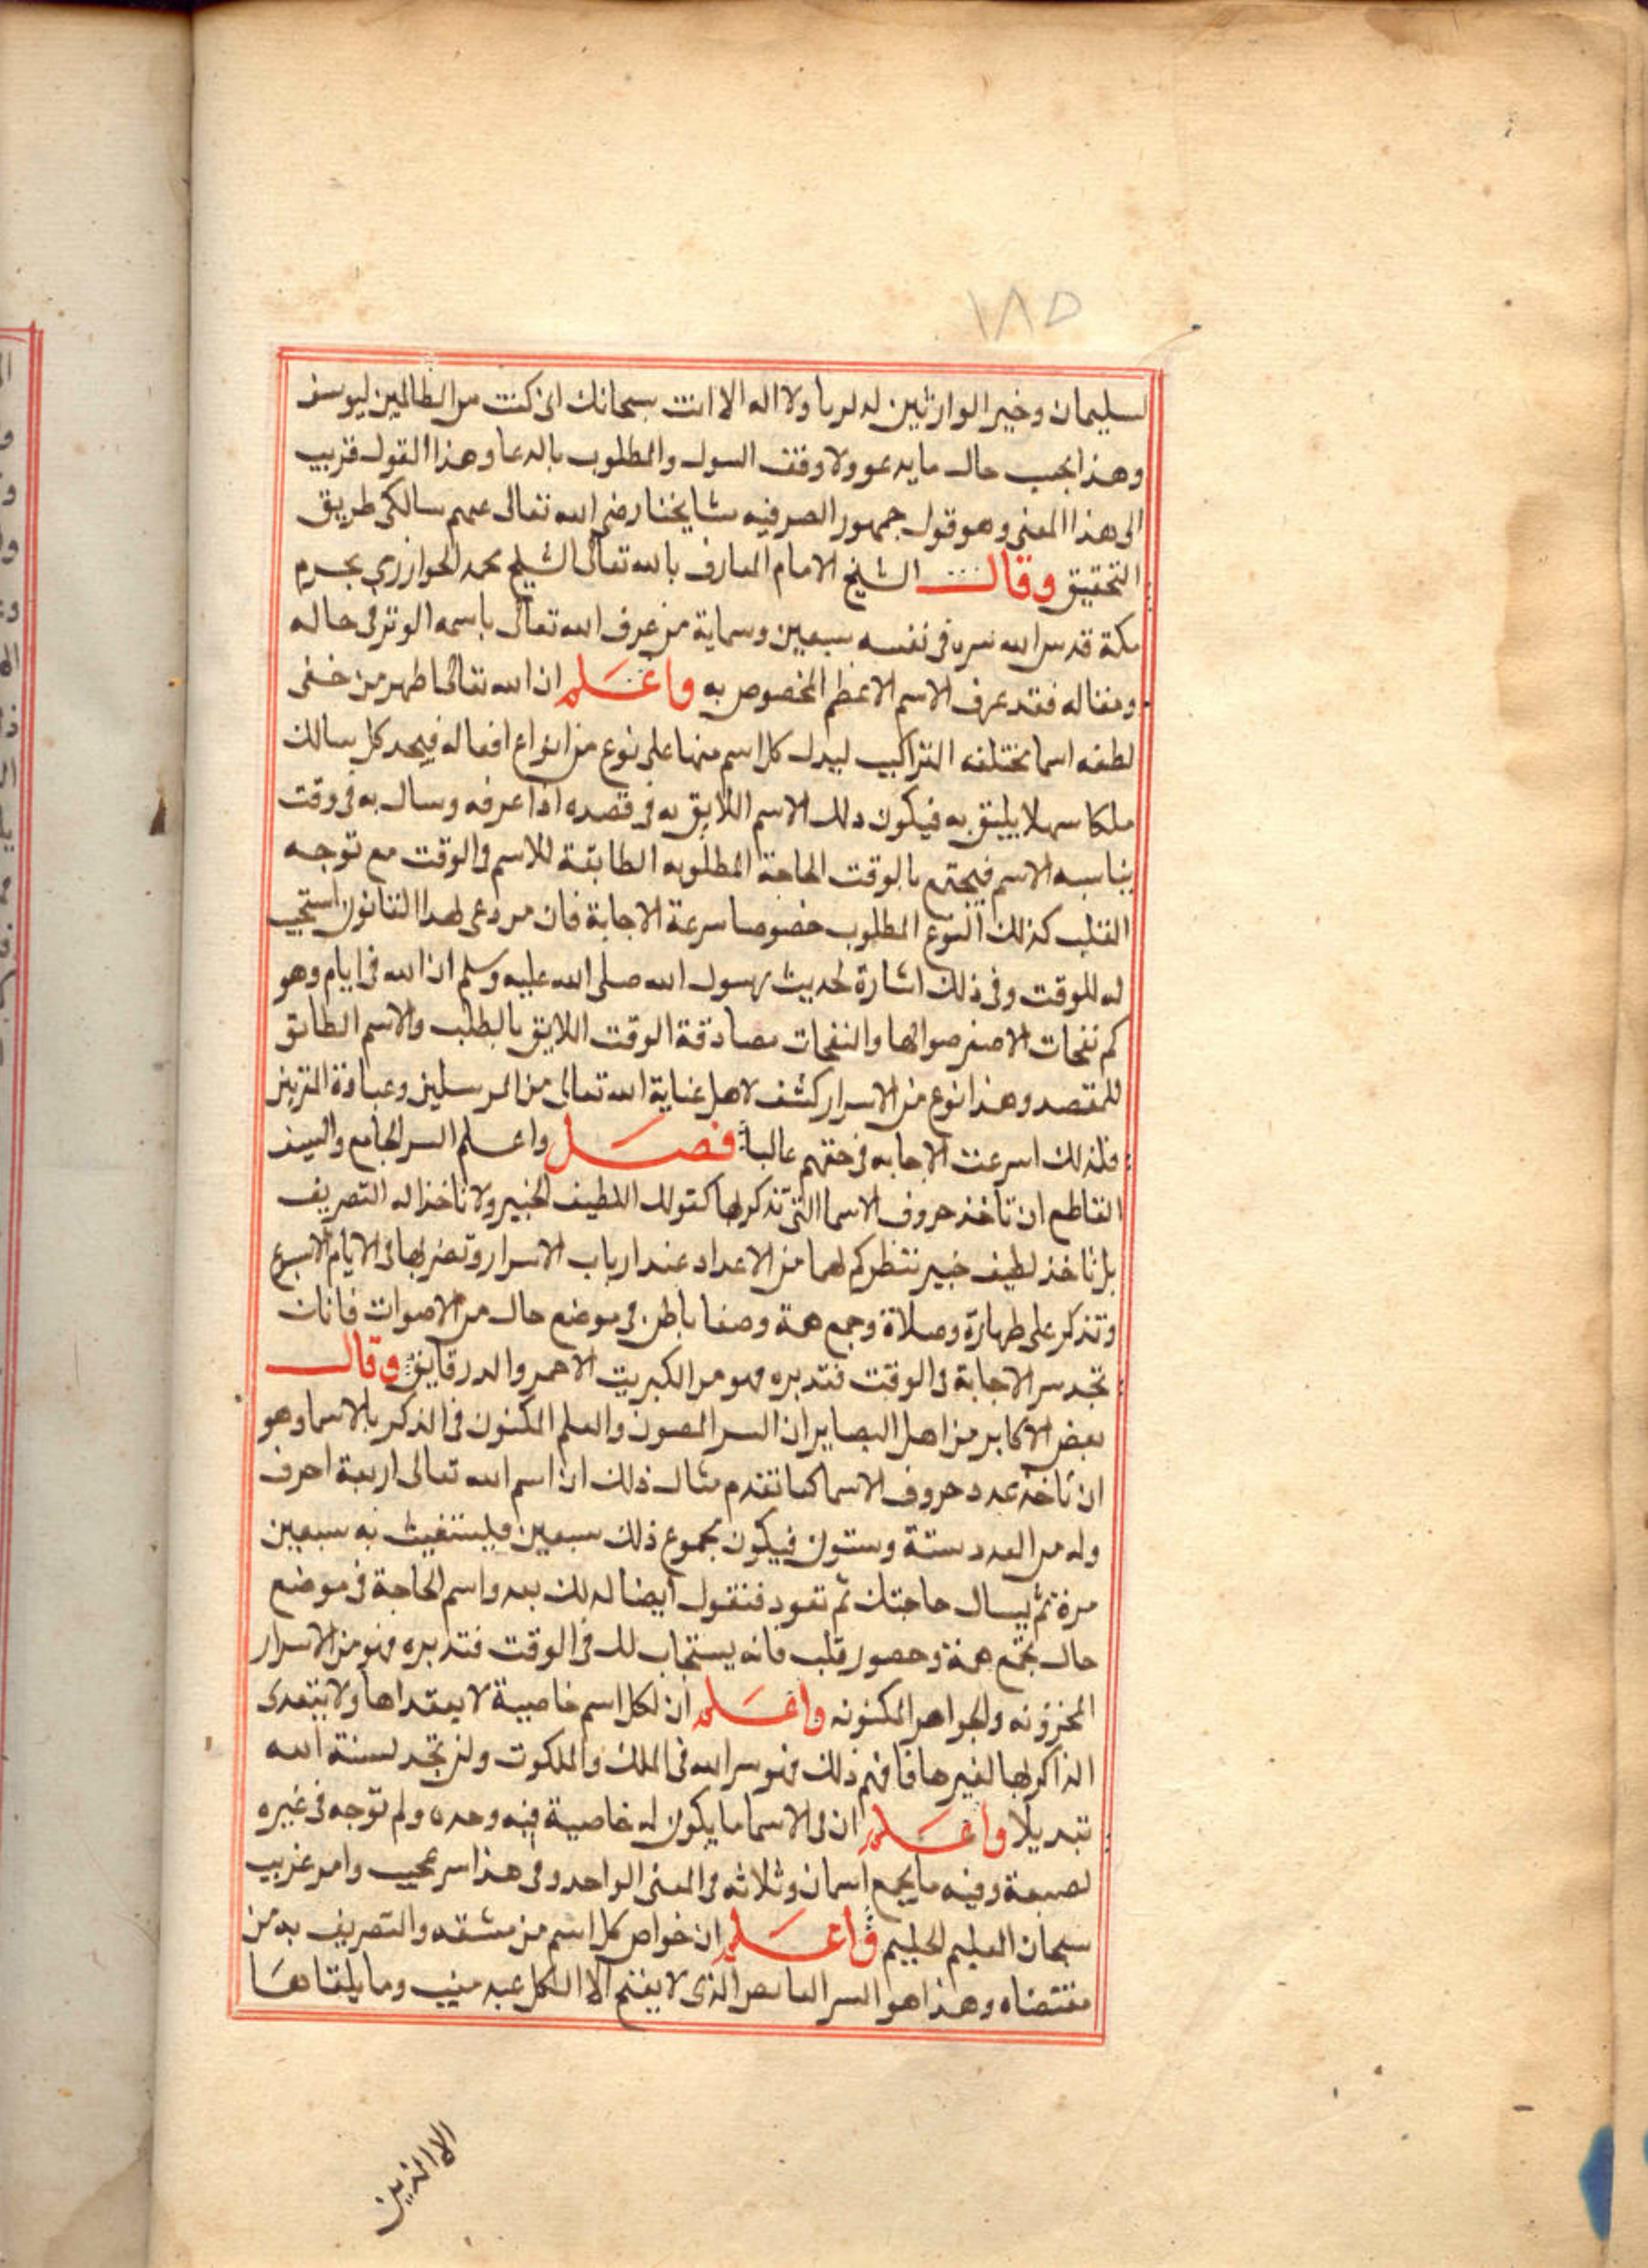 ١٨٥
لسليمان وخير الوارثين لزكريا ولا اله الا انت سبحانك انى كنت من الظالمين ليوسف
وهذا بحب حال ما يدعو ولا وقف السول والمطلوب بالدعا وهذا القول قريب
الى هذا المعنى وهو قول جمهور الصوفيه مشايخنا رضى الله تعالى عنهم سالكى طريق
التحقيق وقال الشيخ الامام العارف بالله تعالى الشيخ محمد الخوارزي بحرم
مكة قدس الله سره فى نفسه سبعين وسماية من عرف الله تعالى باسمه الوتر فى حاله
ومقاله فقد عرف الاسم الاعظم المخصوص به واعلم ان الله تعالى اظهر من خفى
لطفه اسما مختلفه التراكيب ليدل كل اسم منها على نوع من انواع افعاله فيجد كل سالك
ملكا سهلا يليق به فيكون ذلك الاسم اللايق به فى قصده اذا عرفه وسال به فى وقت
يناسبه الاسم فيجتمع بالوقت الحاجة المطلوبه المطابقة للاسم فى الوقت مع توجه
القلب كذلك النوع المطلوب خصوصا سرعة الاجابة فان من دعى بهذا القانون استجيب
له للوقت وفى ذلك اشارة لحديث رسول الله صلى الله عليه وسلم ان لله فى ايام دهو
كم نفحات الا فتعرضوا لها والنفحات مصادقة الوقت اللايق بالطلب والاسم المطابق
للمقصد وهذا نوع من الاسرار كشف لاهل عناية الله تعالى من المرسلين وعبادة المقربين
فلذلك اسرعت الاجابه فى حقهم غالبا فصل واعلم السر الجامع والسيف
القاطع ان تاخذ حروف الاسما التى تذكر بها كقولك اللطيف الخبير ولا تاخذ اله التعريف
بل تاخذ لطيف خبير تنظر كم لهما من الاعداد عند ارباب الاسرار وتضربها فى الايام الاسبوع
وتذكر على طهارة وصلاة وجمع همة وصفا باطن فى موضع خال من الاصوات فانك
تجد سر الاجابة فى الوقت فتدبره فهو من الكبريت الاحمر والدر فايق وقال
بعض الاكابر من اهل البصاير ان السر المصون والعلم المكنون فى الذكر بالاسما وهو
ان تاخذ عدد حروف الاسما كما تقدم مثال ذلك ان اسم الله تعالى اربعة احرف
وله من العدد ستة وستون فيكون مجموع ذلك سبعين فيستغيث به سبعين
مرة ثم يسال حاجتك ثم تعود فتقول ايضا لذلك بعد واسم الحاجة فى موضع
خال بجمع همة وحضور قلب فانه يستجاب لك فى الوقت فتدبره فهو من الاسرار
المخزونه والجواهر المكنونه واعلم ان لكل اسم خاصية لا يعداها ولا يتعدى
الذاكر بها لغيرها فافهم ذلك فهو سر الله فى الملك والملكوت ولن تجد لسنة الله
تبديلا واعلم ان فى الاسما ما يكون له خاصية فيه وحده ولم توجه فى غيره
لصبعة وفيه ما يجمع اسمان وثلاثه فى المعنى الواحد وفى هذا سر عجيب وامر غريب
سبحان العليم الحليم واعلم ان خواص كل اسم من مشقه والتصريف به من
مقتضاه وهذا هو السر الغامض الذى لا يفتح الا لكل عبد منيب وما يلقاها
الا الذين